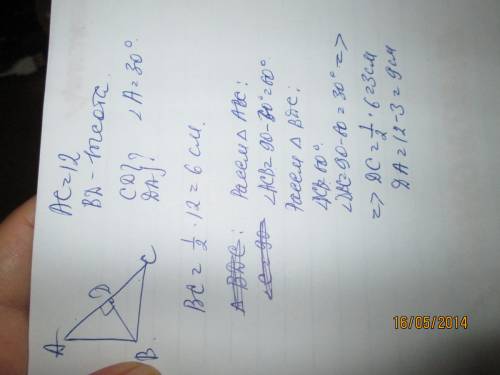 AC=12
BД - высота.
CД?
ДA?
∠A=30°
A
Д
C
B
BC = 1/2 · 12 = 6 см.
Рассм △ ABC:
∠ACB=90-30°=60°
Рассм △ BДC:
∠C=60°
∠DBC=90-60=30° =>
=> DC = 1/2 · 6=3см
DA=12-3=9см
16/05/2014